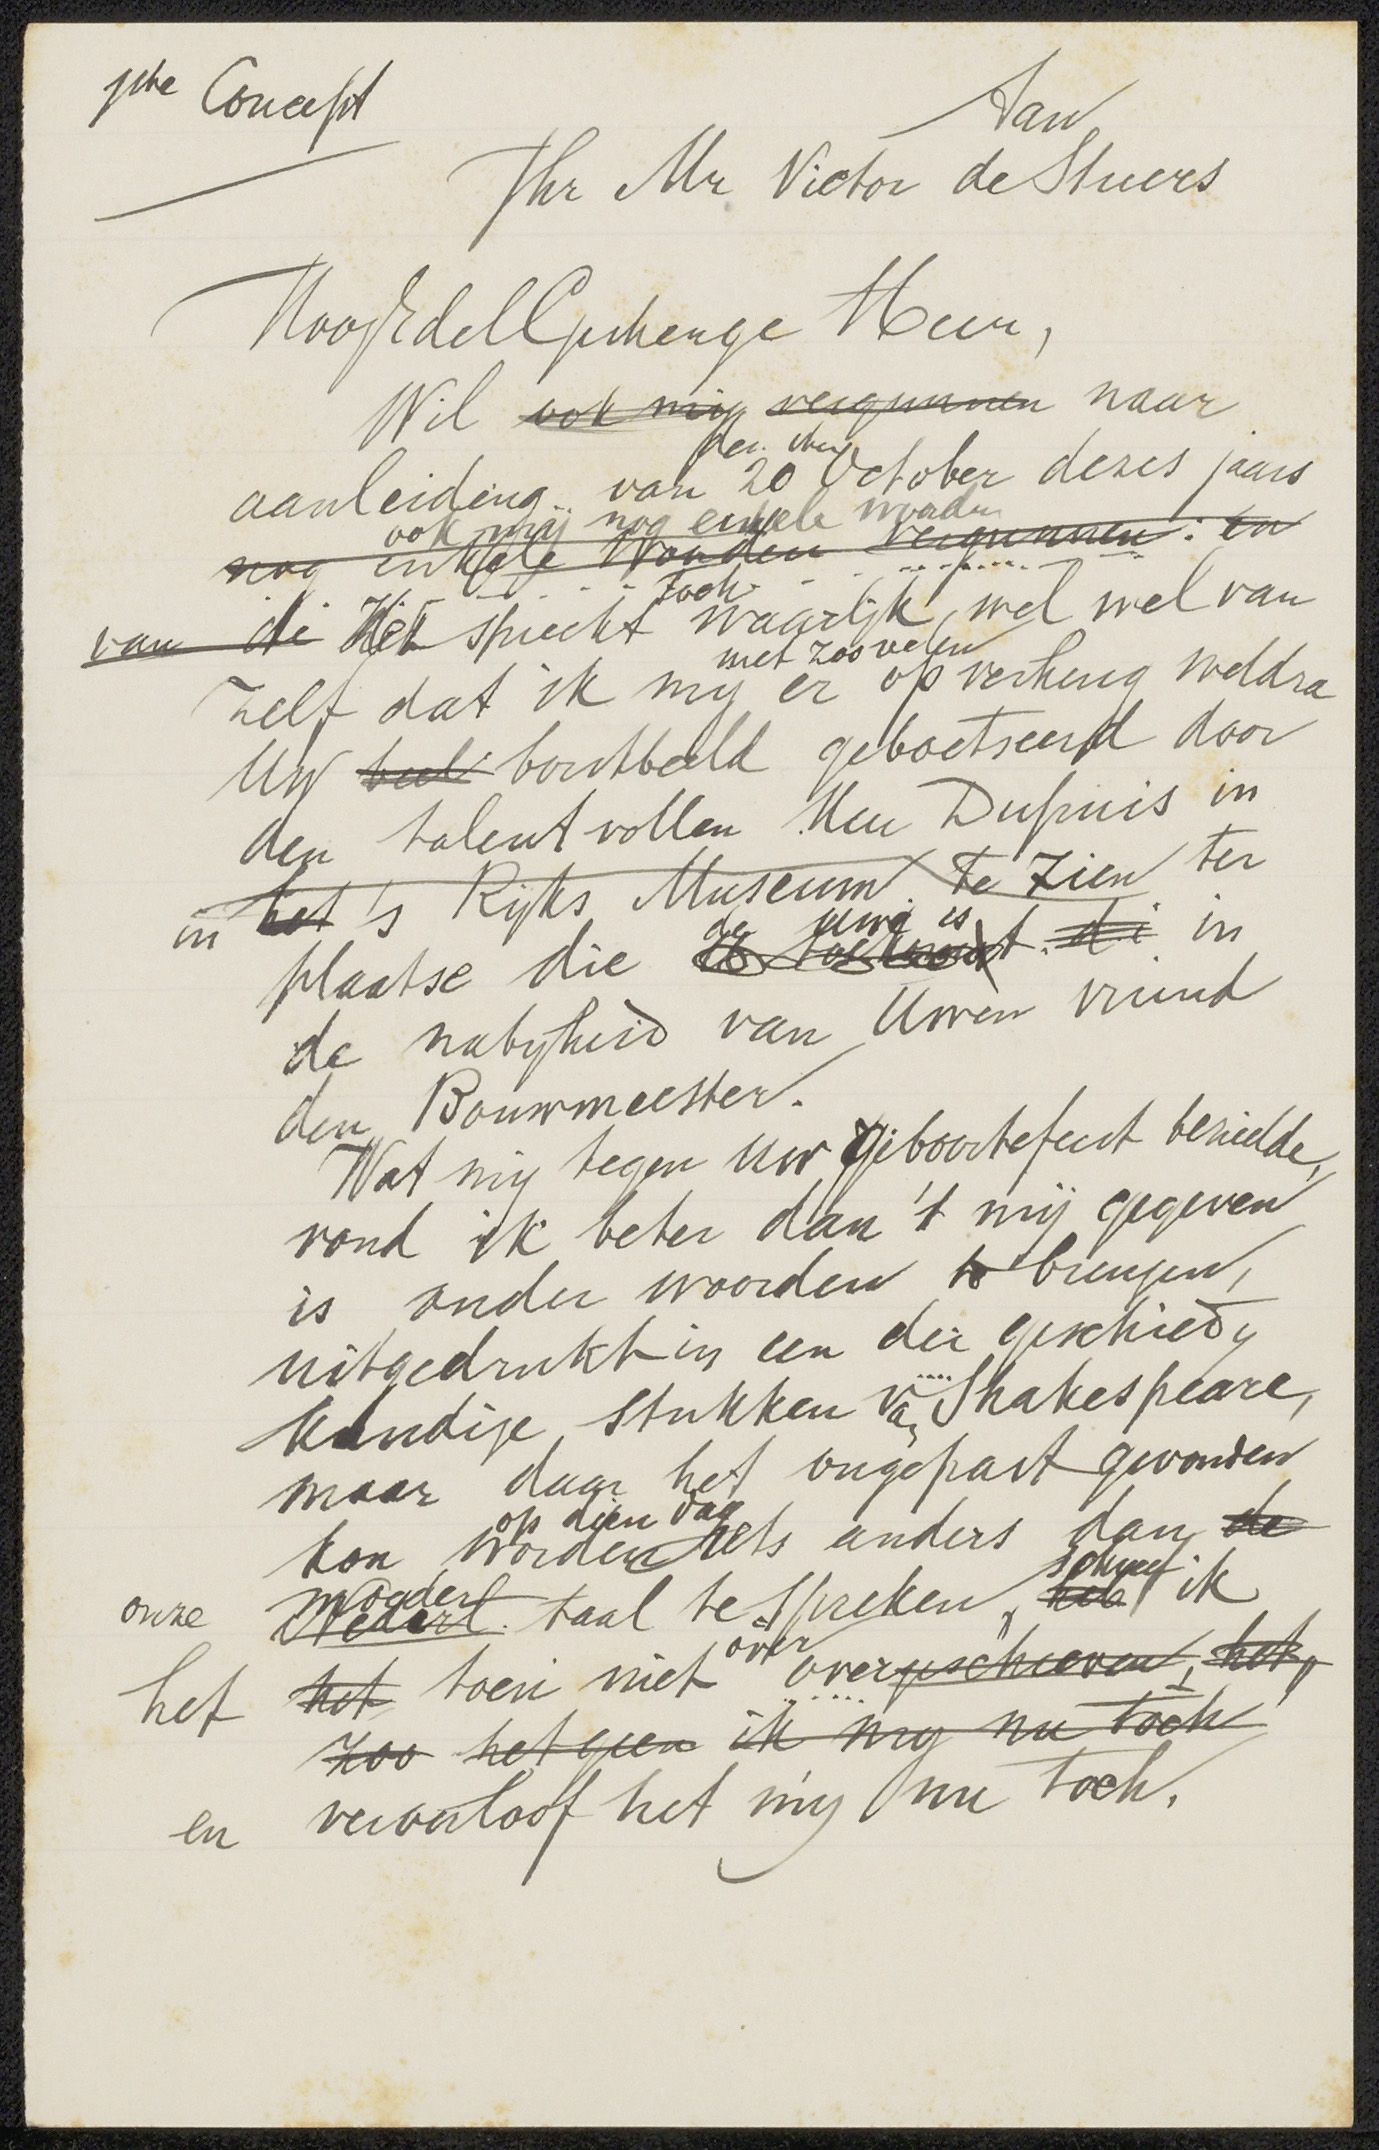 1ste Concept
Aan
Jhr Mr Victor de Stuers
HoogEdelGestrenge Heer,
Wil ook mij vergunnen naar
aanleiding van den 20 October dezes jaars
ook mij nog enkele woorden
nog enkele woorden vergunnen: en
van di Het spreekt toch waarlijk wel wel van
zelf dat ik mij met zoovelen er op verheug weldra
Uw beel borstbeeld geboetseerd door
den talentvollen Heer Dupuis in
in het 's Rijks Museum te zien ter
plaatse die de uwe is di in
de nabijheid van Uwen vriend
den Bouwmeester.
Wat mij tegen Uw Geboortefeest bezielde,
vond ik beter dan 't mij gegeven
is onder woorden te brengen,
uitgedrukt in een der geschied-
kundige stukken van Shakespeare,
maar daar het ongepast gevonden
kon worden op dien dag iets anders dan de
onze moeder Nederl. taal te spreken, heb schreef ik
het het toen niet over overgeschreven, het,
zoo hetgeen ik mij nu toch
en veroorloof het mij nu toch.